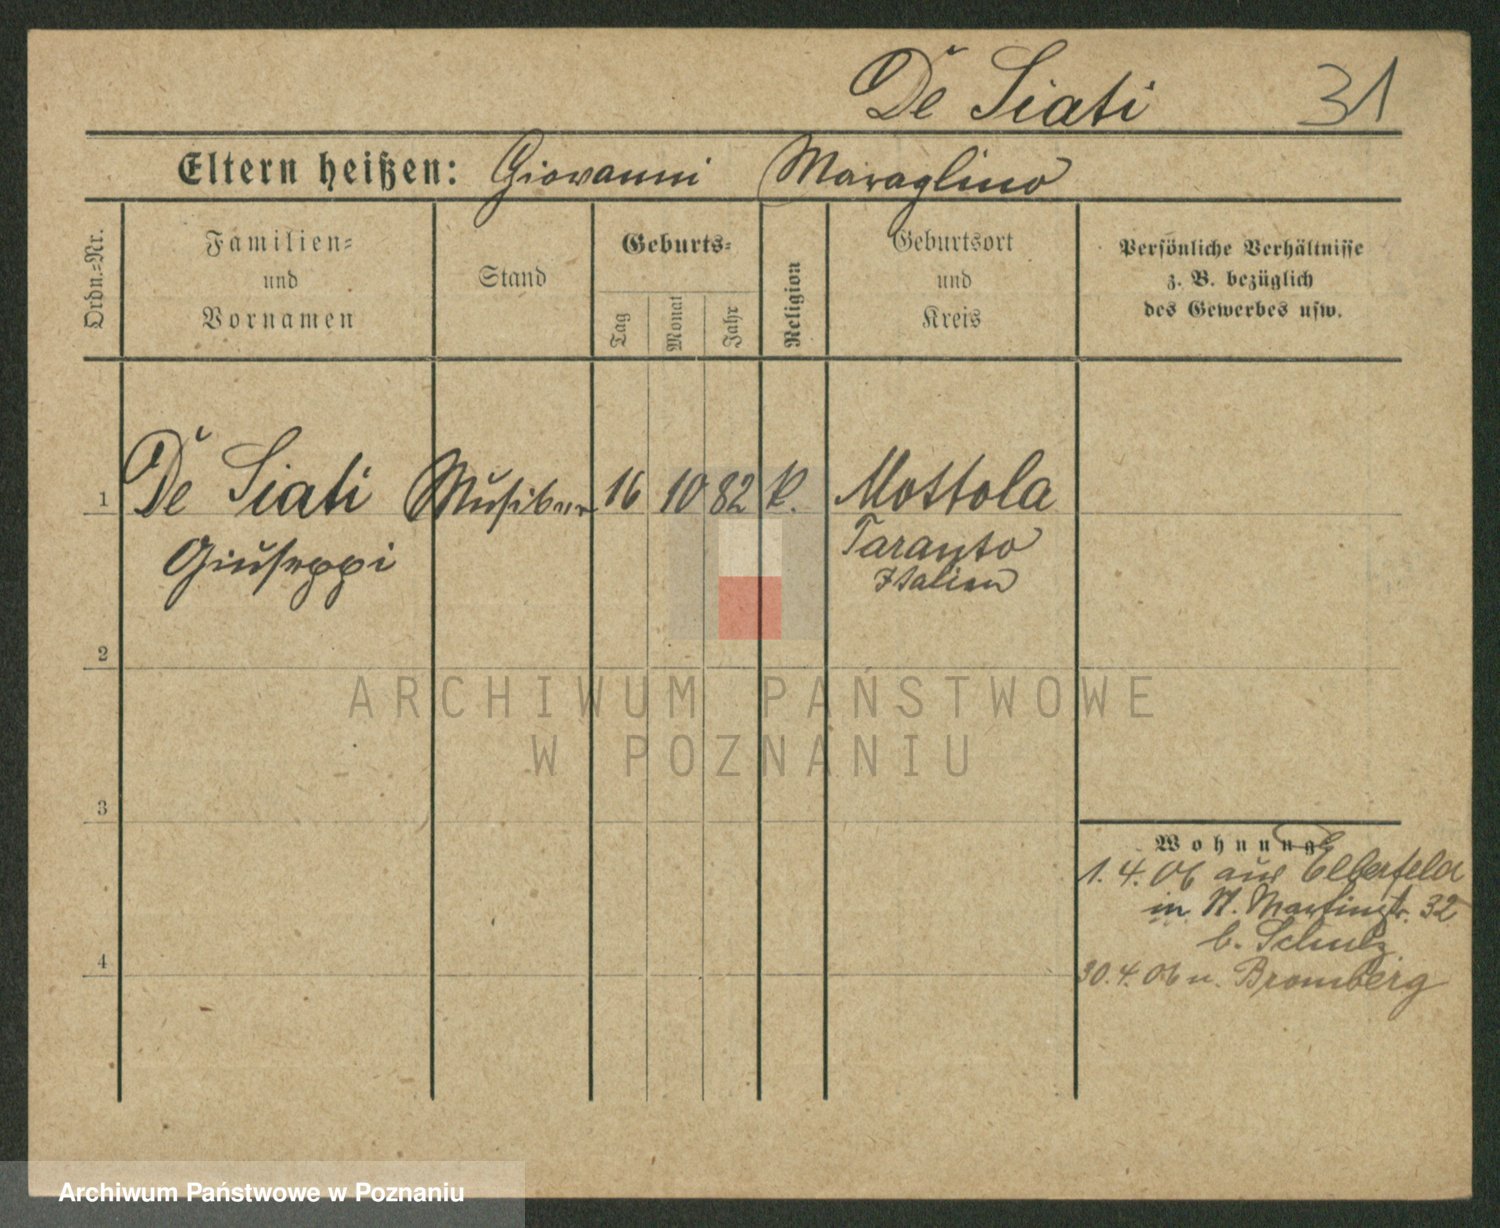 De Siati 31
Eltern heißen: Giovanni Maraglino
Ordn.-Nr.
Familien-
und
Vornamen
Stand
Geburts-
Tag
Monat
Jahr
Religion
Geburtsort
und
Kreis
Persönliche Verhältnisse
z. B. bezüglich
des Gewerbes usw.
1 De Siati Musiker 16 10 82 k. Mottola
Giuseppi Taranto
Italien
2
ARCHIWUM PAŃSTWOWE
W POZNANIU
3
Wohnung
1. 4. 06 aus Elberfeld
in St. Martinstr. 32
b. Schulz
4
30. 4. 06 n. Bromberg
Archiwum Państwowe w Poznaniu